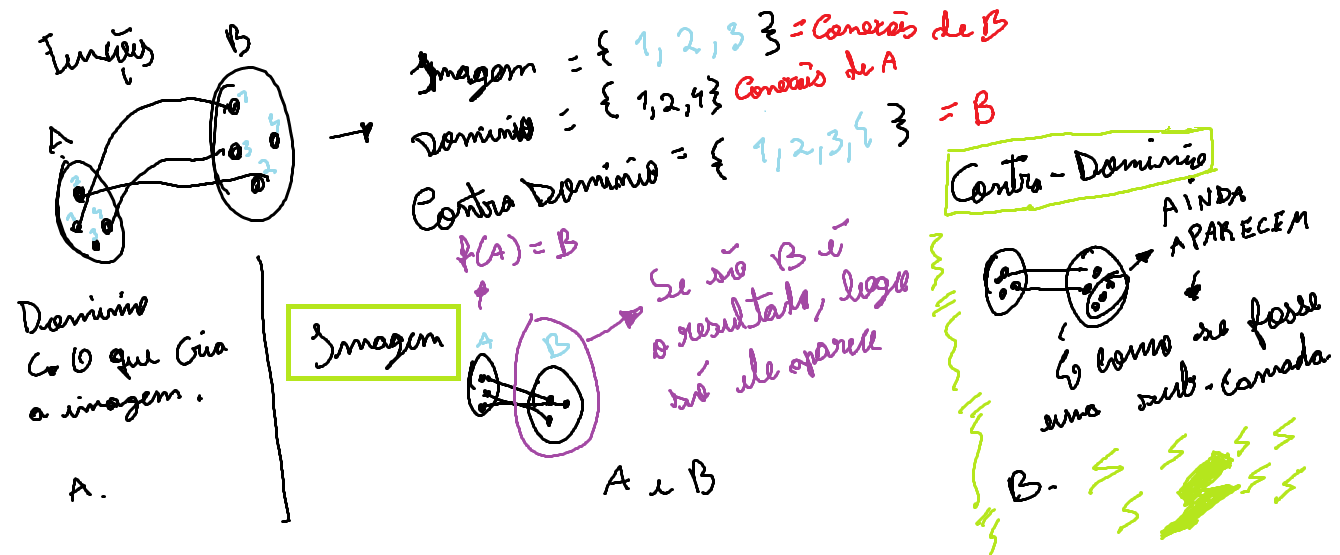 Funções
B
A
1
4
3
2
2
1
4
3
Imagem = { 1, 2, 3 } = Conexões de B
Dominio = { 1,2,4} Conexões de A
Contra Dominio = { 1,2,3,4 } = B
Dominio
O que cria
a imagem.
A.
f(A) = B
Imagem
A
B
Se só B é
o resultado, logo
só ele aparece
A e B
Contra-Dominio
AINDA
APARECEM
É como se fosse
uma sub-camada
B.